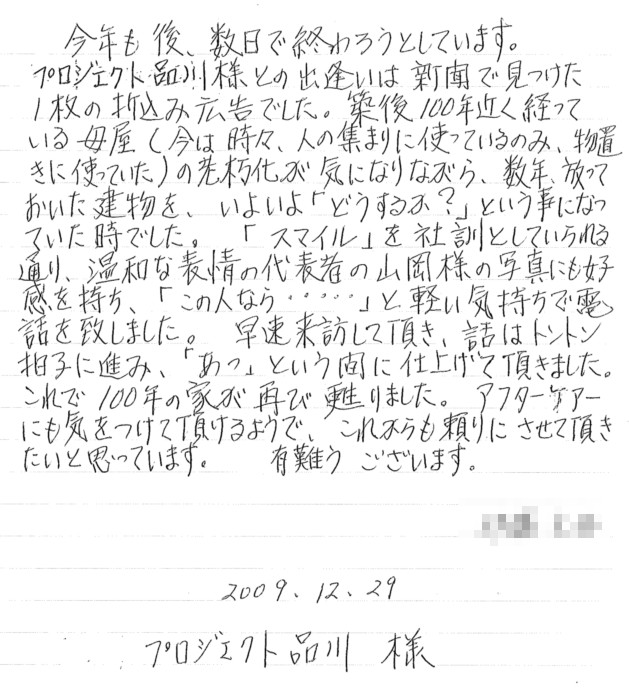 今年も後、数日で終わろうとしています。
プロジェクト品川様との出逢いは新聞で見つけた
1枚の折込み広告でした。築後100年近く経って
いる母屋(今は時々、人の集まりに使っているのみ、物置
きに使っていた)の老朽化が気になりながら、数年、放って
おいた建物を、いよいよ「どうするか?」という事になっ
ていた時でした。「スマイル」を社訓としていられる
通り、温和な表情の代表者の山岡様の写真にも好
感を持ち、「この人なら・・・・・」と軽い気持ちで電
話を致しました。早速来訪して頂き、話はトントン
拍子に進み、「あっ」という間に仕上げて頂きました。
これで100年の家が再び甦りました。アフターケアー
にも気をつけて頂けるようで、これからも頼りにさせて頂き
たいと思っています。有難うございます。
2009.12.29
プロジェクト品川 様